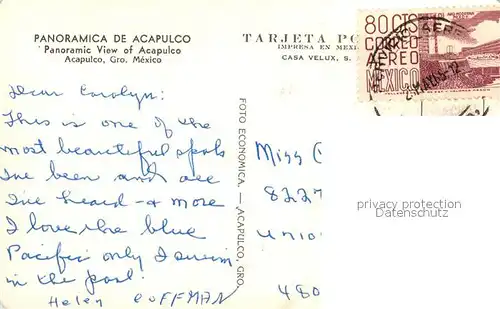 PANORAMICA DE ACAPULCO
Panoramic View of Acapulco
Acapulco, Gro. México
TARJETA PO
IMPRESA EN MEXI
CASA VELUX, S.
80 CTS
CORREO
AEREO
MEXICO
Dear Carolyn:
This is one of the
most beautiful spots
I've been and all
I've heard - & more
I love the blue
Pacific only I swim
in the pool.
Helen COFFMAN
FOTO ECONOMICA. — ACAPULCO, GRO.
Miss C
8227
Unio
480
privacy protection
Datenschutz